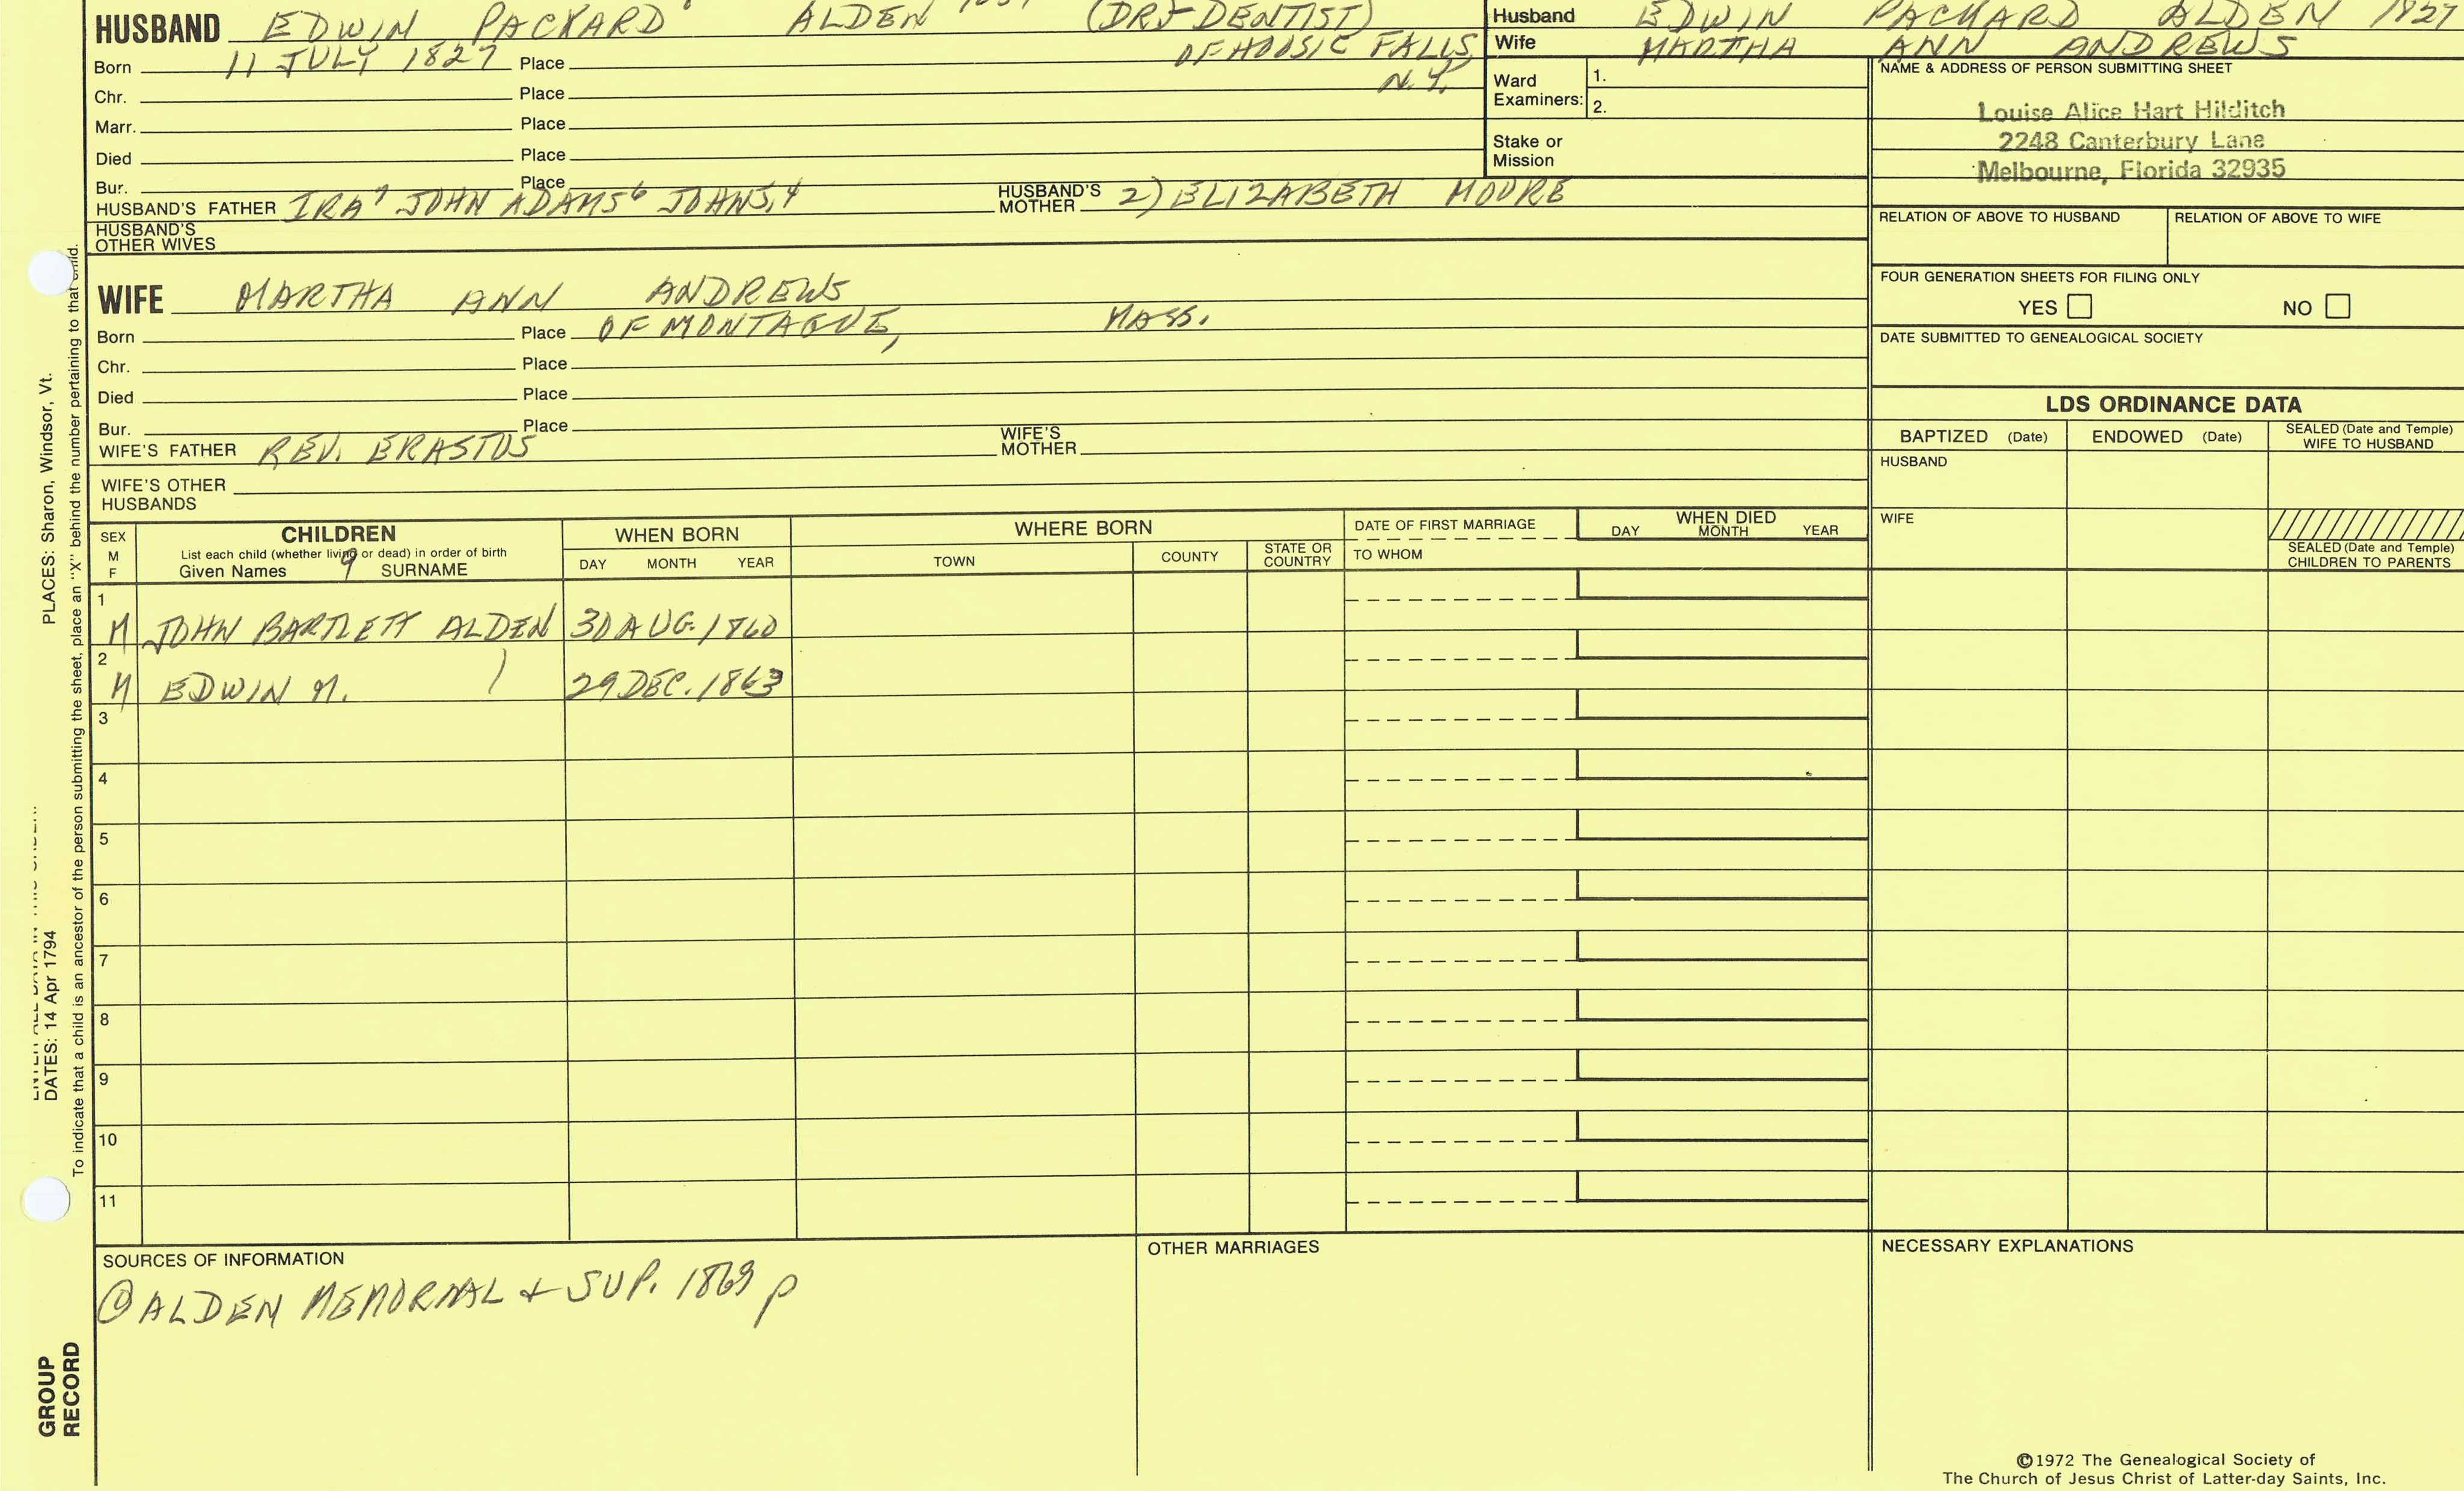 HUSBAND EDWIN PACKARD 8 ALDEN (DR. - DENTIST)
Born 11 JULY 1827 Place OF HOOSIC FALLS,
N.Y.
Chr. Place
Marr. Place
Died Place
Bur. Place
HUSBAND'S FATHER IRA 7 JOHN ADAMS 6 JOHN 5,4 HUSBAND'S MOTHER 2) ELIZABETH MOORE
HUSBAND'S
OTHER WIVES
WIFE MARTHA ANN ANDREWS
Born Place OF MONTAGUE, MASS.
Chr. Place
Died Place
Bur. Place
WIFE'S FATHER REV. ERASTUS WIFE'S MOTHER
WIFE'S OTHER
HUSBANDS
Husband EDWIN PACKARD ALDEN 1827
Wife MARTHA ANN ANDREWS
Ward
Examiners:
1.
2.
Stake or
Mission
NAME & ADDRESS OF PERSON SUBMITTING SHEET
Louise Alice Hart Hilditch
2248 Canterbury Lane
Melbourne, Florida 32935
RELATION OF ABOVE TO HUSBAND RELATION OF ABOVE TO WIFE
FOUR GENERATION SHEETS FOR FILING ONLY
YES NO
DATE SUBMITTED TO GENEALOGICAL SOCIETY
LDS ORDINANCE DATA
BAPTIZED (Date) ENDOWED (Date) SEALED (Date and Temple)
WIFE TO HUSBAND
HUSBAND
WIFE
SEALED (Date and Temple)
CHILDREN TO PARENTS
SEX
M
F
CHILDREN
List each child (whether living or dead) in order of birth
Given Names 9 SURNAME
WHEN BORN
DAY MONTH YEAR
WHERE BORN
TOWN COUNTY STATE OR
COUNTRY
DATE OF FIRST MARRIAGE
TO WHOM
WHEN DIED
DAY MONTH YEAR
1
M JOHN BARTLETT ALDEN 30 AUG. 1860
2
M EDWIN M. 29 DEC. 1863
3
4
5
6
7
8
9
10
11
SOURCES OF INFORMATION
@ ALDEN MEMORIAL + SUP. 1869 p
OTHER MARRIAGES
NECESSARY EXPLANATIONS
©1972 The Genealogical Society of
The Church of Jesus Christ of Latter-day Saints, Inc.
PLACES: Sharon, Windsor, Vt.
DATES: 14 Apr 1794
To indicate that a child is an ancestor of the person submitting the sheet, place an "X" behind the number pertaining to that child.
GROUP
RECORD